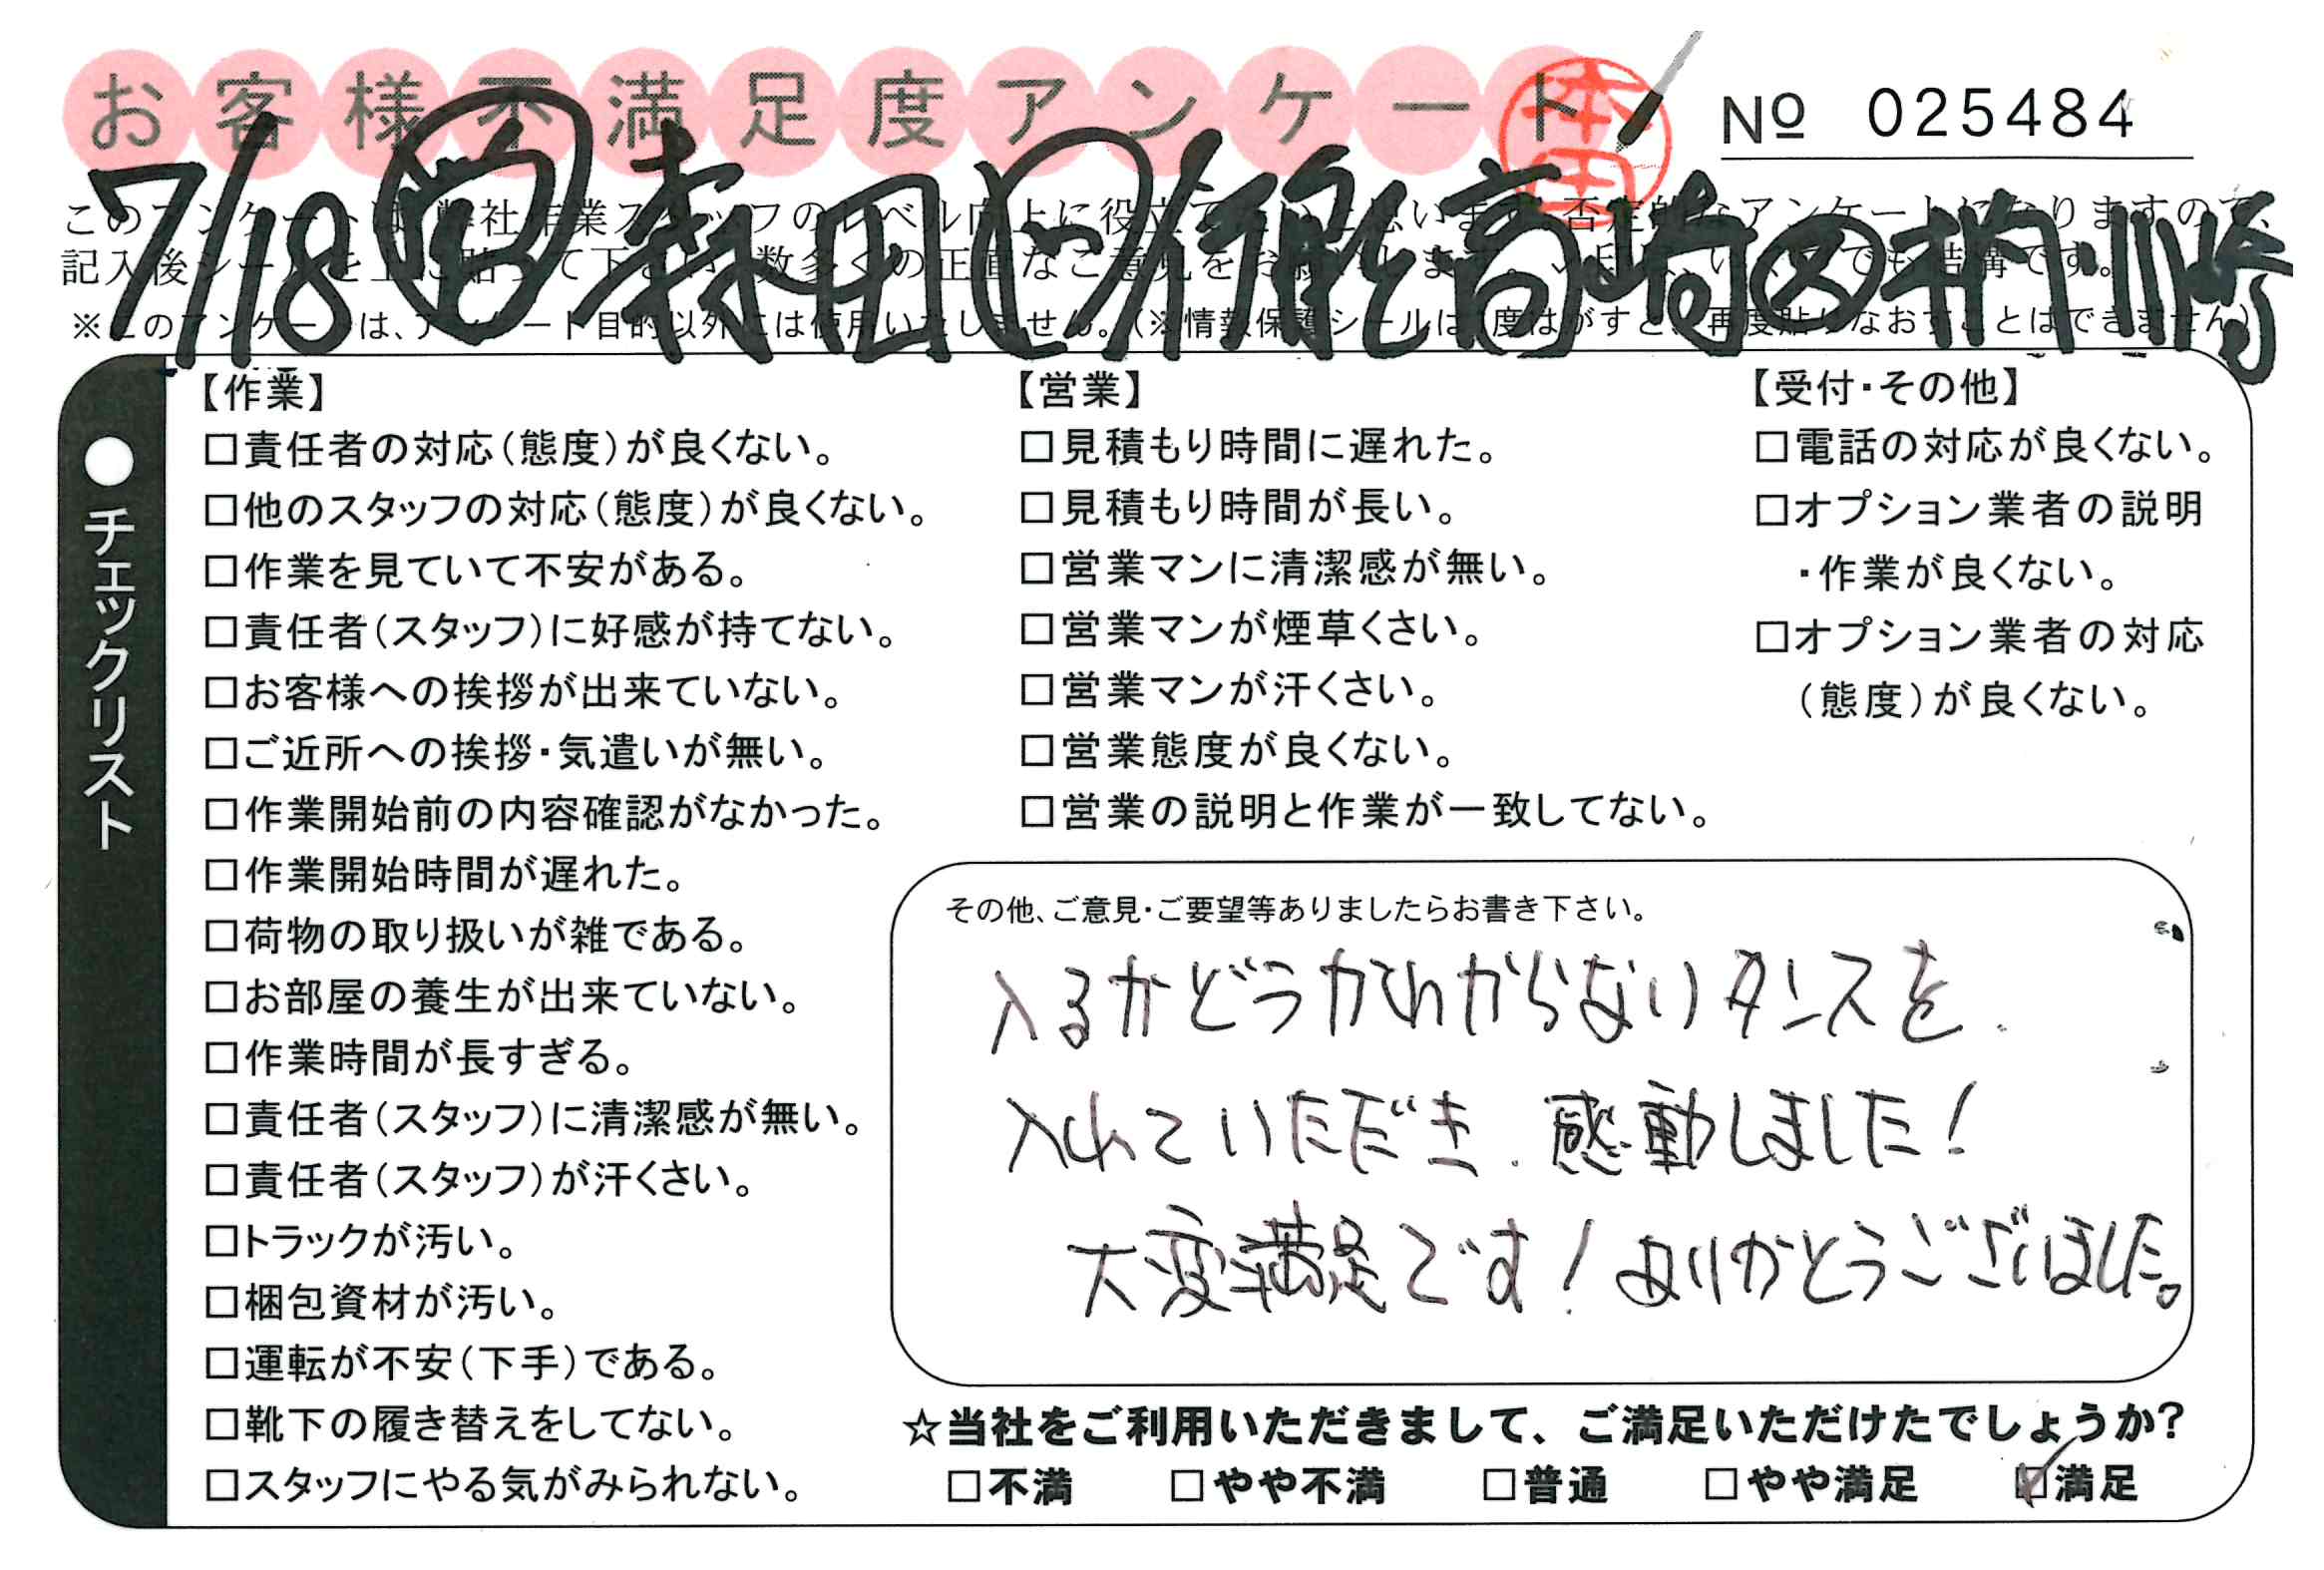 お客様不満足度アンケート
本田
№ 025484
7/18 森田 高崎
このアンケートは、弊社作業スタッフのレベル向上に役立てたいと思います。否定的なアンケートになりますので、
記入後シールを上に貼って下さい。数多くの正直なご意見をお願いします。
※このアンケートは、アンケート目的以外には使用いたしません。(※情報保護シールは1度はがすと、再度貼りなおすことはできません)
●チェックリスト
【作業】
□責任者の対応(態度)が良くない。
□他のスタッフの対応(態度)が良くない。
□作業を見ていて不安がある。
□責任者(スタッフ)に好感が持てない。
□お客様への挨拶が出来ていない。
□ご近所への挨拶・気遣いが無い。
□作業開始前の内容確認がなかった。
□作業開始時間が遅れた。
□荷物の取り扱いが雑である。
□お部屋の養生が出来ていない。
□作業時間が長すぎる。
□責任者(スタッフ)に清潔感が無い。
□責任者(スタッフ)が汗くさい。
□トラックが汚い。
□梱包資材が汚い。
□運転が不安(下手)である。
□靴下の履き替えをしてない。
□スタッフにやる気がみられない。
【営業】
□見積もり時間に遅れた。
□見積もり時間が長い。
□営業マンに清潔感が無い。
□営業マンが煙草くさい。
□営業マンが汗くさい。
□営業態度が良くない。
□営業の説明と作業が一致してない。
【受付・その他】
□電話の対応が良くない。
□オプション業者の説明
・作業が良くない。
□オプション業者の対応
(態度)が良くない。
その他、ご意見・ご要望等ありましたらお書き下さい。
入るかどうかわからないタンスを
入れていただき、感動しました!
大変満足です!ありがとうございました。
☆当社をご利用いただきまして、ご満足いただけたでしょうか?
□不満 □やや不満 □普通 □やや満足 ☑満足